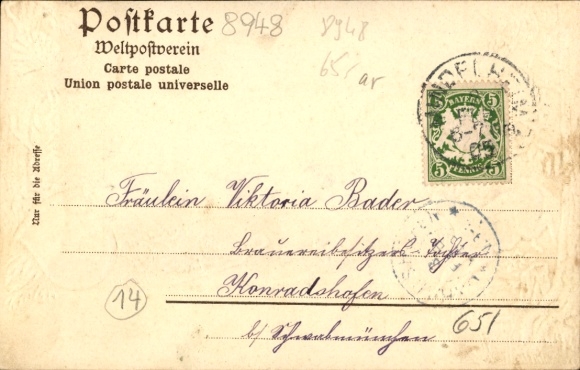 Postkarte
8948
8948
Weltpostverein
Carte postale
65,
ar
Union postale universelle
BAYERN
5 5
5 PFENNIG 5
Nur für die Adresse
Fräulein Viktoria Bader
Brauereibesitzers Tochter
Konradshofen
14
651
b/ Schwabmünchen